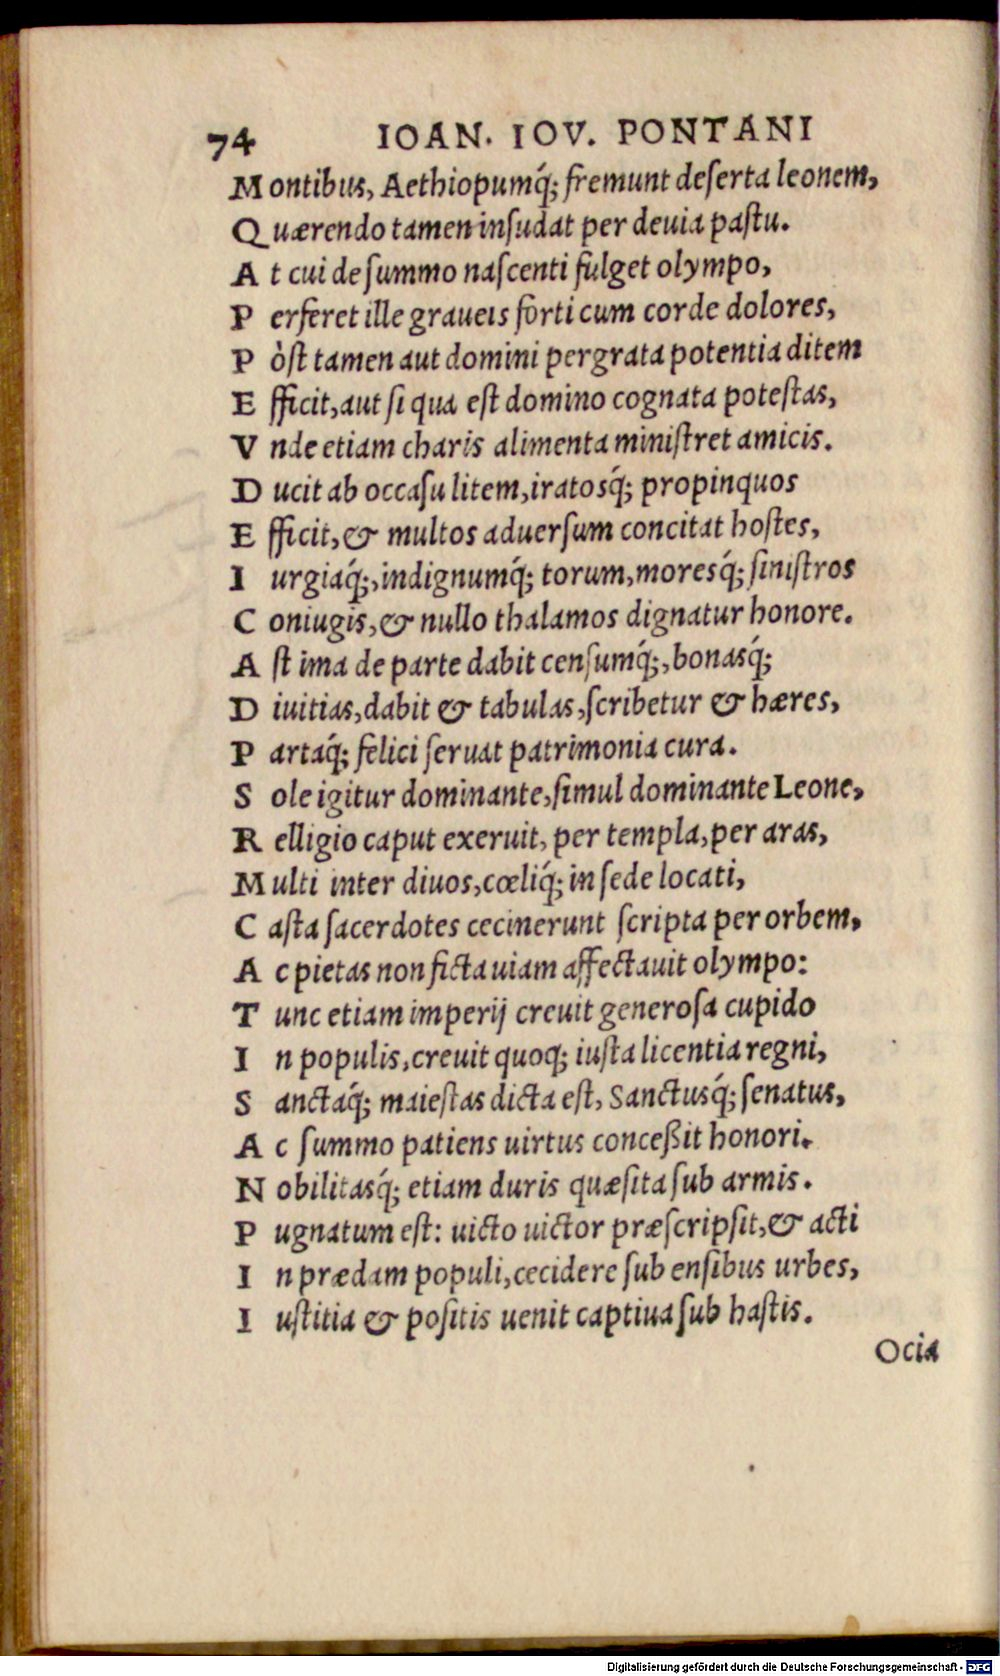 74 IOAN. IOV. PONTANI
Montibus, Aethiopumq́; fremunt deserta leonem,
Quærendo tamen insudat per deuia pastu.
At cui de summo nascenti fulget olympo,
Perferet ille graueis forti cum corde dolores,
Pòst tamen aut domini pergrata potentia ditem
Efficit, aut si qua est domino cognata potestas,
Vnde etiam charis alimenta ministret amicis.
Ducit ab occasu litem, iratosq́; propinquos
Efficit, & multos aduersum concitat hostes,
Iurgiaq́;, indignumq́; torum, moresq́; sinistros
Coniugis, & nullo thalamos dignatur honore.
Ast ima de parte dabit censumq́;, bonasq́;
Diuitias, dabit & tabulas, scribetur & hæres,
Partaq́; felici seruat patrimonia cura.
Sole igitur dominante, simul dominante Leone,
Relligio caput exeruit, per templa, per aras,
Multi inter diuos, cœliq́; in sede locati,
Casta sacerdotes cecinerunt scripta per orbem,
Ac pietas non ficta uiam affectauit olympo:
Tunc etiam imperij creuit generosa cupido
In populis, creuit quoq; iusta licentia regni,
Sanctaq́; maiestas dicta est, Sanctusq́; senatus,
Ac summo patiens uirtus conceßit honori.
Nobilitasq́; etiam duris quæsita sub armis.
Pugnatum est: uicto uictor præscripsit, & acti
In prædam populi, cecidere sub ensibus urbes,
Iustitia & positis uenit captiua sub hastis.
Ocia
Digitalisierung gefördert durch die Deutsche Forschungsgemeinschaft - DFG